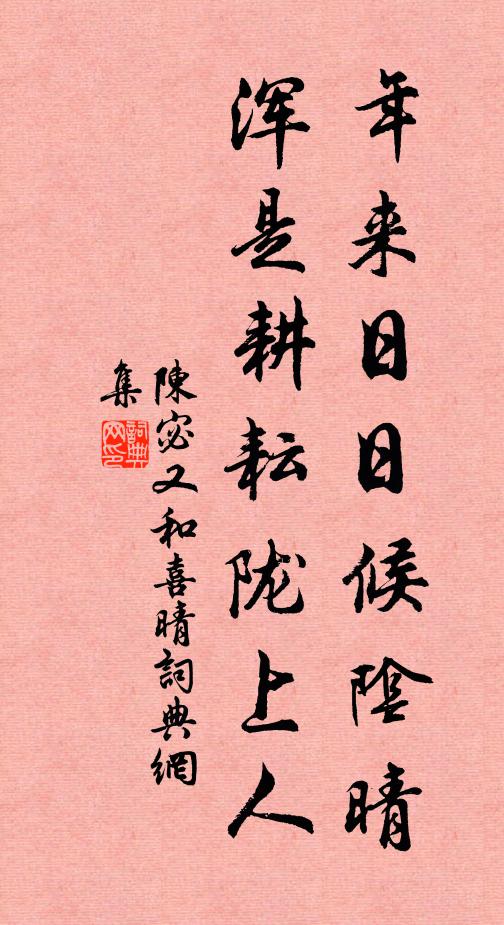 年来日日候陰晴
浑是耕耘陇上人
陳宓又和喜晴詞典網
集
詞典
网印